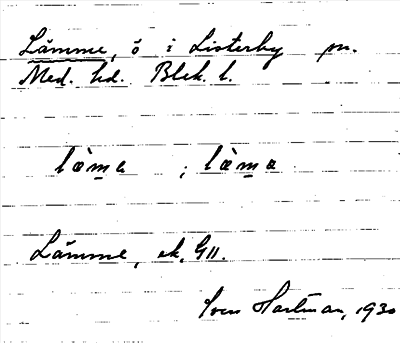 Lämme, ö i Listerby sn.
Med. hd. Blek. l.
læ̀m̲a ; læ̀m̲a
Lämme, ek. G11.
Sven Hartman, 1930